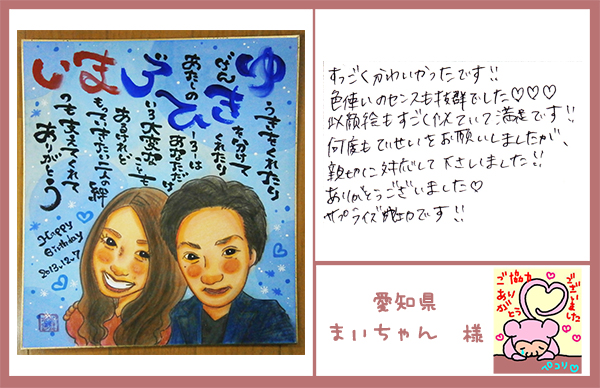 ゆうきをくれたり
げんきを分けて
くれたり
あたしの
ひーろーは
あなただけ
いろいろ大変なことも
あるけれど
まもっていきたい二人の絆
いつもささえてくれて
ありがとう
Happy
Birthday
2013.12.7
すっごくかわいかったです!!
色使いのセンスも抜群でした♡♡♡
似顔絵もすごく似ていて満足です!!
何度もていせいをお願いしましたが、
親切に対応して下さいました!!
ありがとうございました♡
サプライズ成功です!!
愛知県
まいちゃん 様
ご協力
ありがとう
ございました
ペコリ♡